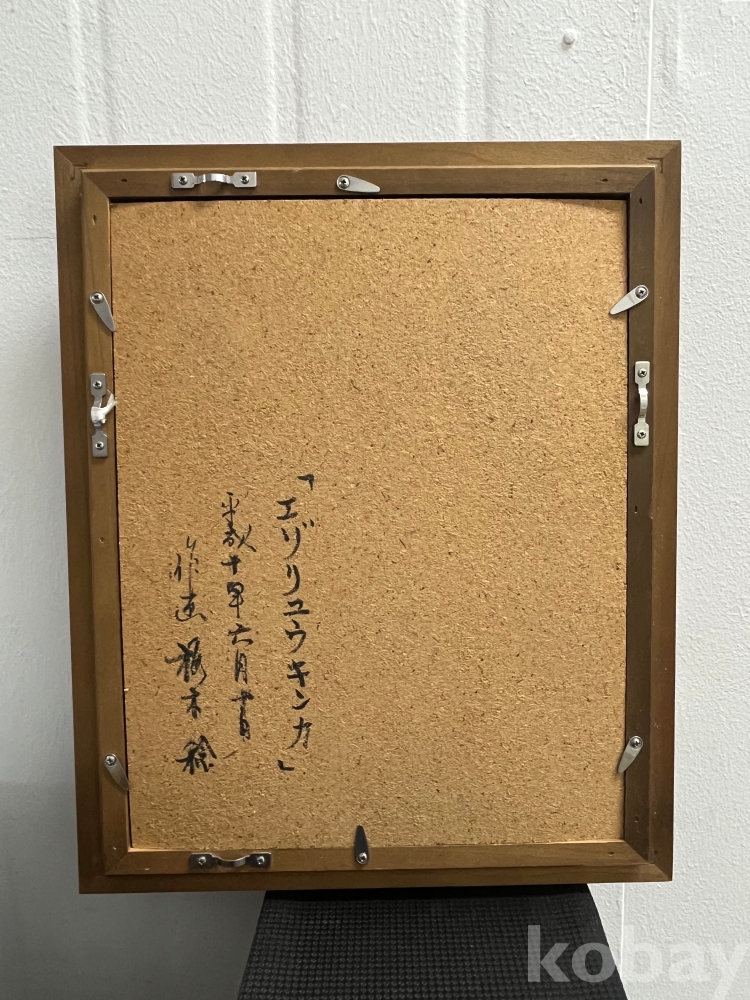 「エゾリュウキンカ」
平成十年六月十日
作画 木
kobay